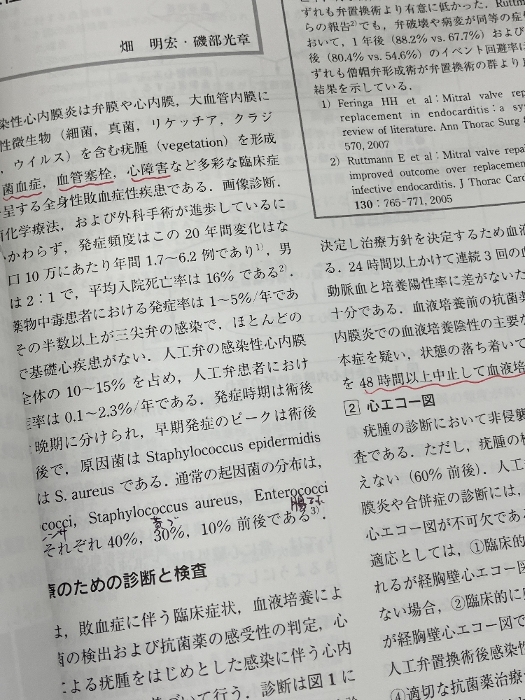 畑 明宏・磯部光章
染性心内膜炎は弁膜や心内膜，大血管内膜に
性微生物（細菌，真菌，リケッチア，クラジ
，ウイルス）を含む疣腫（vegetation）を形成
菌血症，血管塞栓，心障害など多彩な臨床症
呈する全身性敗血症性疾患である．画像診断．
化学療法，および外科手術が進歩しているに
かわらず，発症頻度はこの 20 年間変化はな
口 10 万にあたり年間 1.7～6.2 例であり1)，男
は 2：1 で，平均入院死亡率は 16% である2)．
薬物中毒患者における発症率は 1～5%/年であ
その半数以上が三尖弁の感染で，ほとんどの
で基礎心疾患がない．人工弁の感染性心内膜
全体の 10～15% を占め，人工弁患者におけ
率は 0.1～2.3%/年である．発症時期は術後
晩期に分けられ，早期発症のピークは術後
後で，原因菌は Staphylococcus epidermidis
は S. aureus である．通常の起因菌の分布は，
cocci，Staphylococcus aureus，Enterococci
それぞれ 40%，30%，10% 前後である3)．
療のための診断と検査
は，敗血症に伴う臨床症状，血液培養によ
菌の検出および抗菌薬の感受性の判定，心
による疣腫をはじめとした感染に伴う心内
いて行う．診断は図 1 に
ずれも弁置換術より有意に低かった．Ruttm
らの報告2)でも，弁破壊や病変が同等の症
おいて，1 年後（88.2% vs. 67.7%）および
後（80.4% vs. 54.6%）のイベント回避率は
ずれも僧帽弁形成術が弁置換術の群より良
結果を示している．
1) Feringa HH et al：Mitral valve rep
replacement in endocarditis：a sy
review of literature. Ann Thorac Surg
570, 2007
2) Ruttmann E et al：Mitral valve repa
improved outcome over replacemen
infective endocarditis. J Thorac Card
130：765-771, 2005
決定し治療方針を決定するため血液
る．24 時間以上かけて連続 3 回の血
動脈血と培養陽性率に差がないた
十分である．血液培養前の抗菌薬
内膜炎での血液培養陰性の主要な
本症を疑い，状態の落ち着いて
を 48 時間以上中止して血液培
2 心エコー図
疣腫の診断において非侵襲
査である．ただし，疣腫の検
えない（60% 前後）．人工
膜炎や合併症の診断には，
心エコー図が不可欠である
適応としては，①臨床的
れるが経胸壁心エコー図
ない場合，②臨床的に
が経胸壁心エコー図で
人工弁置換術後感染性
④適切な抗菌薬治療